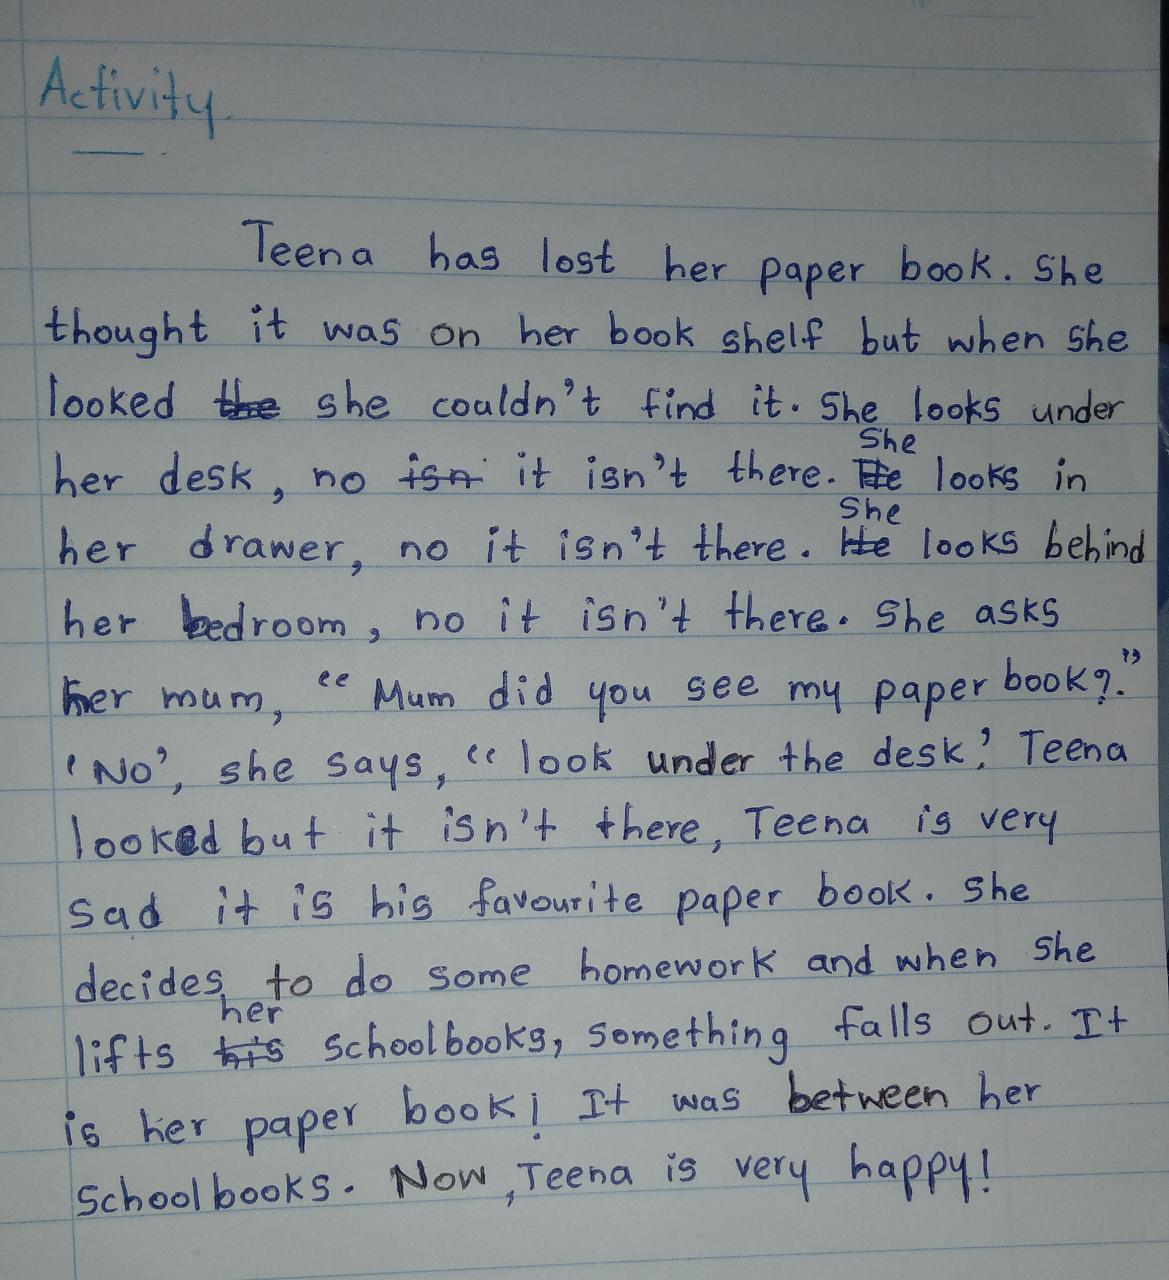 Activity
Teena has lost her paper book. She
thought it was on her book shelf but when she
looked the she couldn't find it. She looks under
her desk, no isn' it isn't there. He She looks in
her drawer, no it isn't there. He She looks behind
her bedroom, no it isn't there. She asks
her mum, “ Mum did you see my paper book?.”
'No', she says, “ look under the desk.' Teena
looked but it isn't there, Teena is very
sad it is his favourite paper book. She
decides to do some homework and when she
lifts his her schoolbooks, something falls out. It
is her paper book! It was between her
schoolbooks. Now, Teena is very happy!